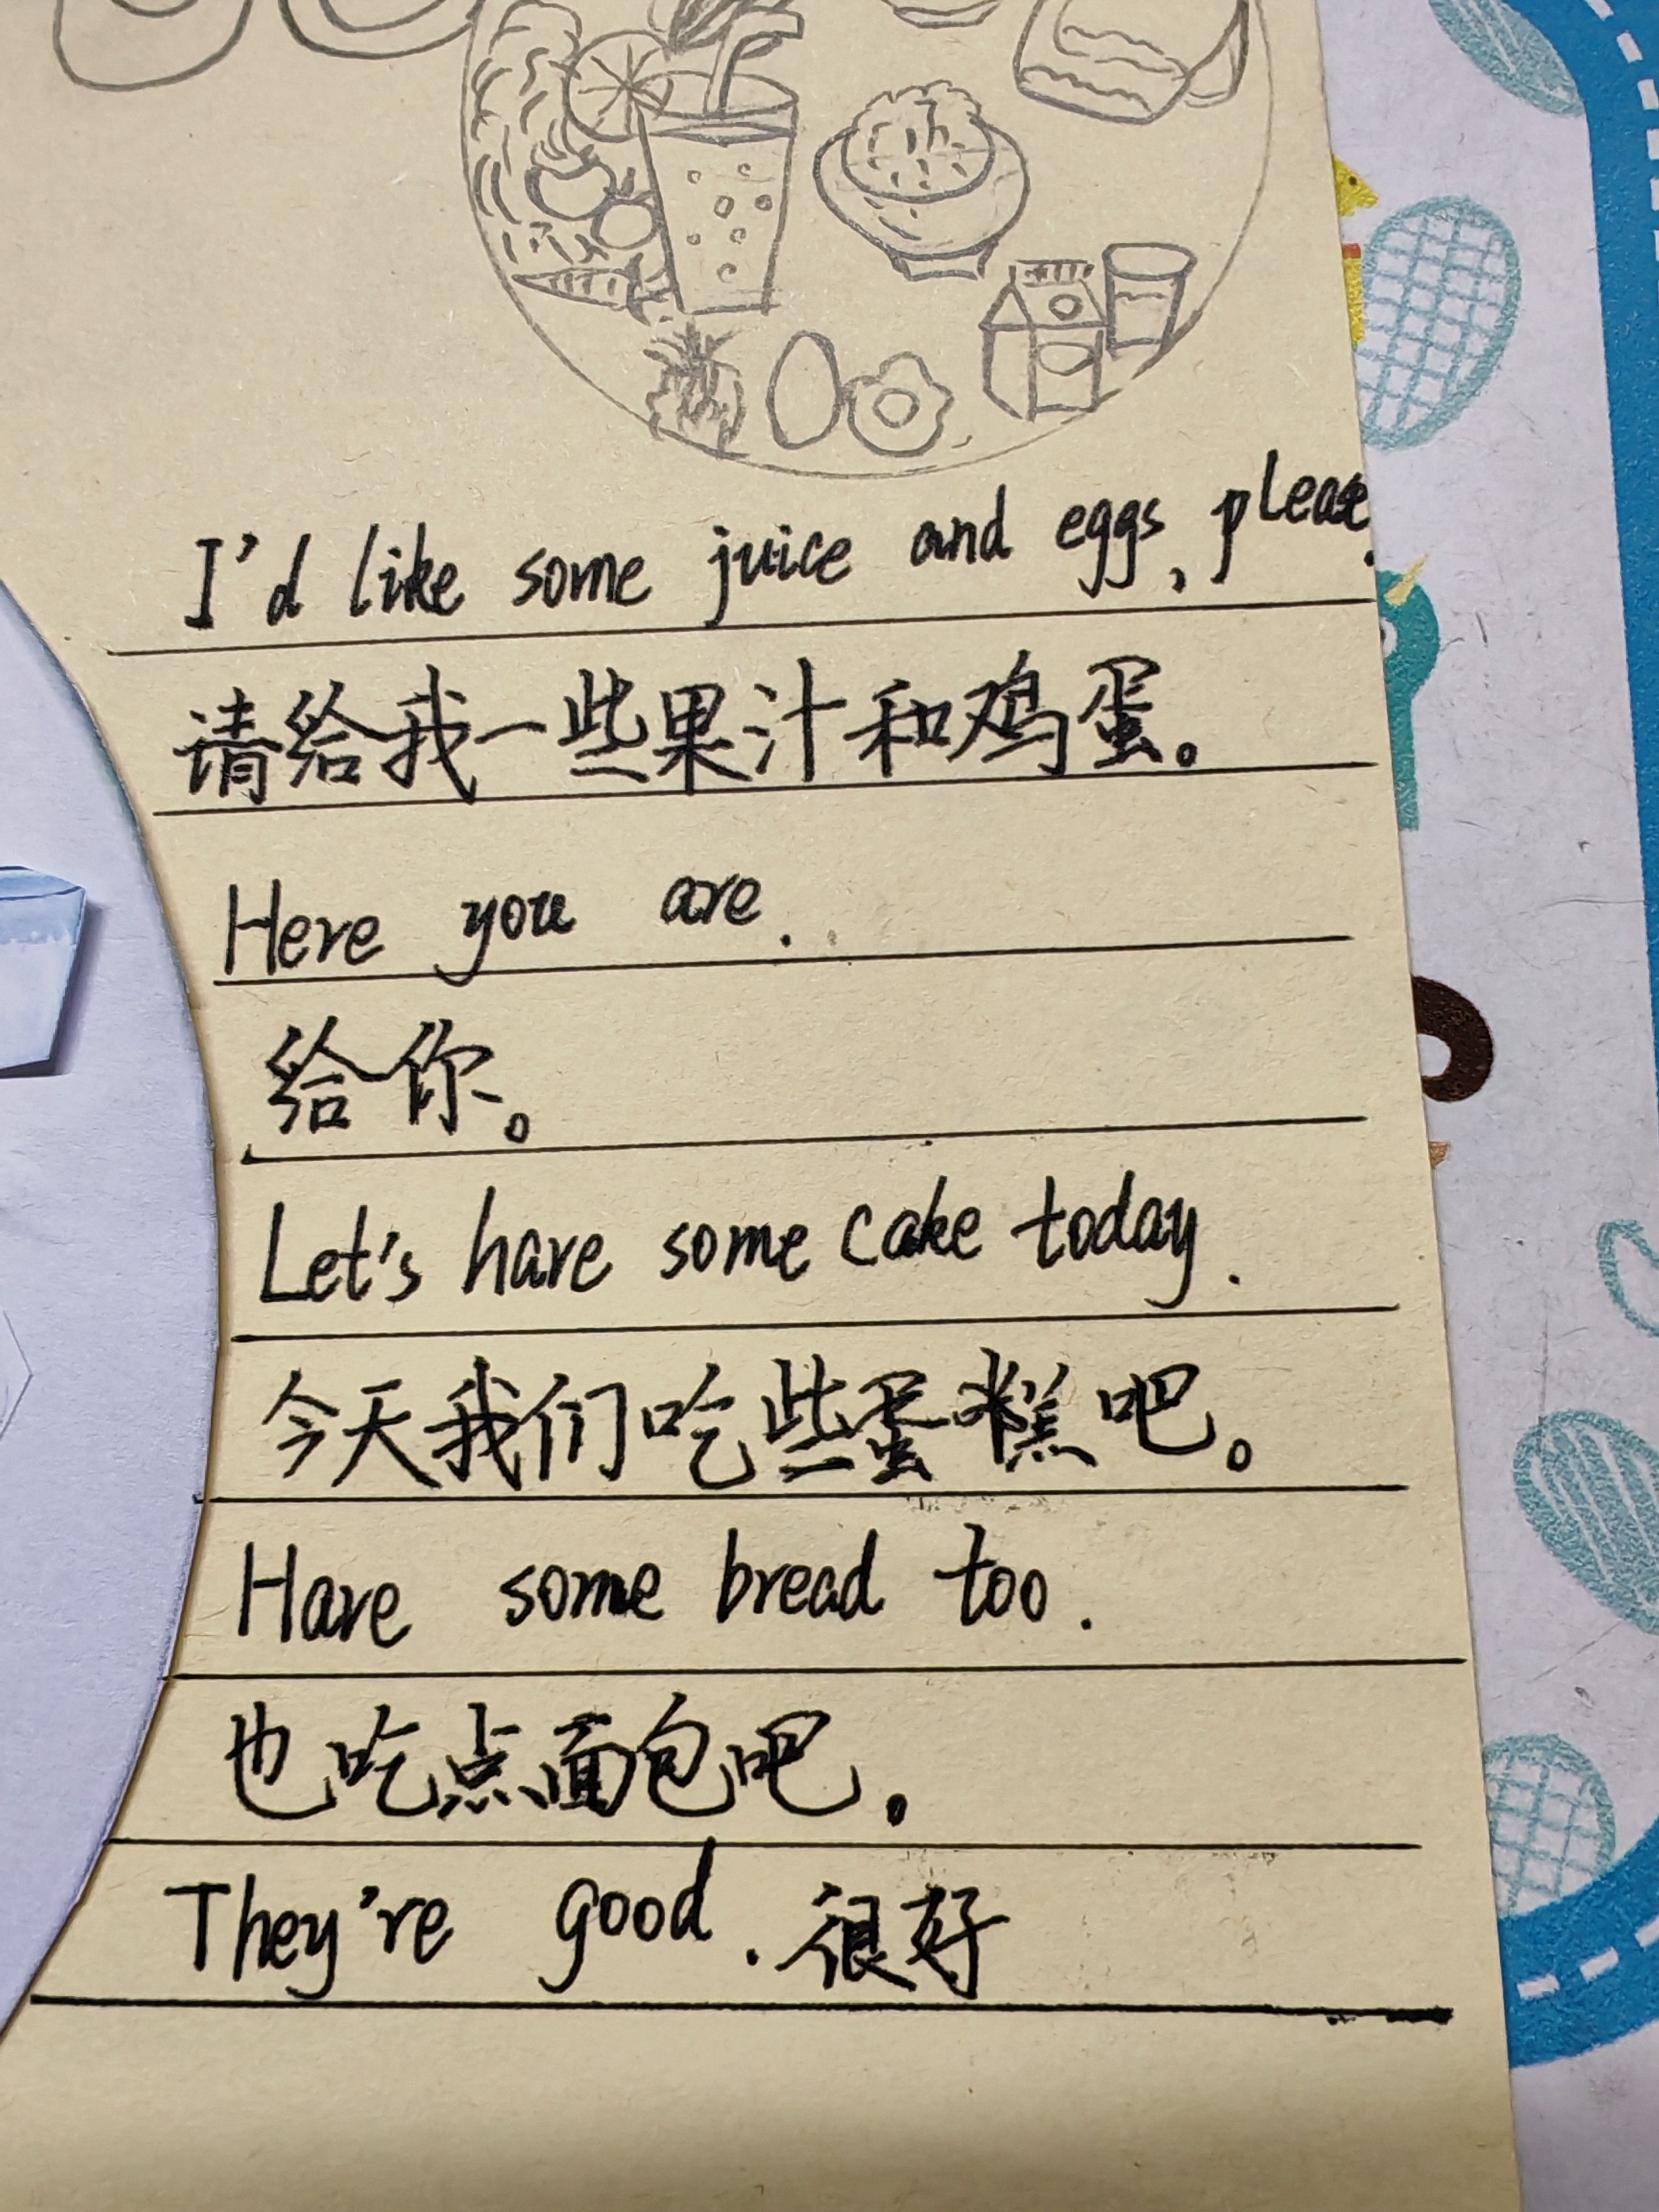 I'd like some juice and eggs, please.
请给我一些果汁和鸡蛋。
Here you are.
给你。
Let's have some cake today.
今天我们吃些蛋糕吧。
Have some bread too.
也吃点面包吧。
They're good. 很好